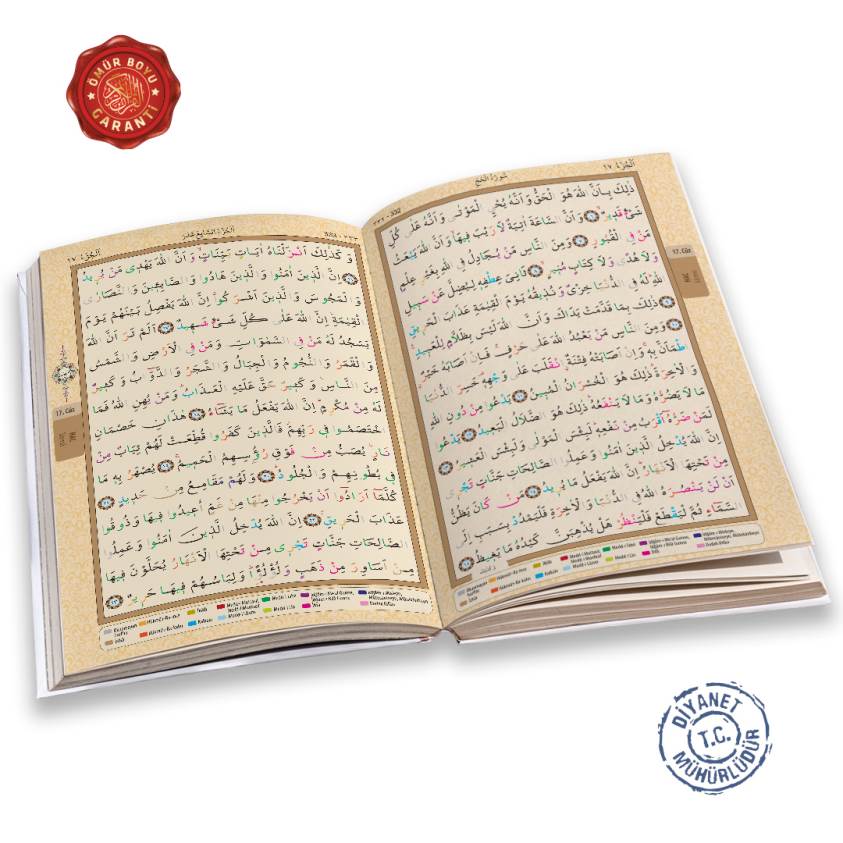 ÖMÜR BOYU
GARANTİ
اَلْجُزْءُ ١٧
سُورَةُ الْحَجِّ
332 - ٣٣٢
ذٰلِكَ بِاَنَّ اللّٰهَ هُوَ الْحَقُّ وَاَنَّهُ يُحْيِ الْمَوْتٰى وَاَنَّهُ عَلٰى كُلِّ
شَيْءٍ قَدِيرٌ وَاَنَّ السَّاعَةَ اٰتِيَةٌ لَا رَيْبَ فِيهَا وَاَنَّ اللّٰهَ يَبْعَثُ
مَنْ فِي الْقُبُورِ وَمِنَ النَّاسِ مَنْ يُجَادِلُ فِي اللّٰهِ بِغَيْرِ عِلْمٍ
وَلَا هُدًى وَلَا كِتَابٍ مُنِيرٍ ثَانِيَ عِطْفِهِ لِيُضِلَّ عَنْ سَبِيلِ
اللّٰهِ لَهُ فِي الدُّنْيَا خِزْيٌ وَنُذِيقُهُ يَوْمَ الْقِيٰمَةِ عَذَابَ الْحَرِيقِ
ذٰلِكَ بِمَا قَدَّمَتْ يَدَاكَ وَاَنَّ اللّٰهَ لَيْسَ بِظَلَّامٍ لِلْعَبِيدِ
وَمِنَ النَّاسِ مَنْ يَعْبُدُ اللّٰهَ عَلٰى حَرْفٍ فَاِنْ اَصَابَهُ خَيْرٌ
اطْمَاَنَّ بِهِ وَاِنْ اَصَابَتْهُ فِتْنَةٌ انْقَلَبَ عَلٰى وَجْهِهِ خَسِرَ الدُّنْيَا
وَالْاٰخِرَةَ ذٰلِكَ هُوَ الْخُسْرَانُ الْمُبِينُ يَدْعُوا مِنْ دُونِ اللّٰهِ
مَا لَا يَضُرُّهُ وَمَا لَا يَنْفَعُهُ ذٰلِكَ هُوَ الضَّلَالُ الْبَعِيدُ يَدْعُوا
لَمَنْ ضَرُّهُ اَقْرَبُ مِنْ نَفْعِهِ لَبِئْسَ الْمَوْلٰى وَلَبِئْسَ الْعَشِيرُ
اِنَّ اللّٰهَ يُدْخِلُ الَّذِينَ اٰمَنُوا وَعَمِلُوا الصَّالِحَاتِ جَنَّاتٍ تَجْرِي
مِنْ تَحْتِهَا الْاَنْهَارُ اِنَّ اللّٰهَ يَفْعَلُ مَا يُرِيدُ مَنْ كَانَ يَظُنُّ
اَنْ لَنْ يَنْصُرَهُ اللّٰهُ فِي الدُّنْيَا وَالْاٰخِرَةِ فَلْيَمْدُدْ بِسَبَبٍ اِلَى
السَّمَاءِ ثُمَّ لْيَقْطَعْ فَلْيَنْظُرْ هَلْ يُذْهِبَنَّ كَيْدُهُ مَا يَغِيظُ
17. Cüz
اَلْجُزْءُ السَّابِعَ عَشَرَ
اَلْجُزْءُ ١٧
333 - ٣٣٣
وَكَذٰلِكَ اَنْزَلْنَاهُ اٰيَاتٍ بَيِّنَاتٍ وَاَنَّ اللّٰهَ يَهْدِي مَنْ يُرِيدُ
اِنَّ الَّذِينَ اٰمَنُوا وَالَّذِينَ هَادُوا وَالصَّابِـِٔينَ وَالنَّصَارٰى
وَالْمَجُوسَ وَالَّذِينَ اَشْرَكُوا اِنَّ اللّٰهَ يَفْصِلُ بَيْنَهُمْ يَوْمَ
الْقِيٰمَةِ اِنَّ اللّٰهَ عَلٰى كُلِّ شَيْءٍ شَهِيدٌ اَلَمْ تَرَ اَنَّ اللّٰهَ
يَسْجُدُ لَهُ مَنْ فِي السَّمٰوَاتِ وَمَنْ فِي الْاَرْضِ وَالشَّمْسُ
وَالْقَمَرُ وَالنُّجُومُ وَالْجِبَالُ وَالشَّجَرُ وَالدَّوَابُّ وَكَثِيرٌ
مِنَ النَّاسِ وَكَثِيرٌ حَقَّ عَلَيْهِ الْعَذَابُ وَمَنْ يُهِنِ اللّٰهُ فَمَا
لَهُ مِنْ مُكْرِمٍ اِنَّ اللّٰهَ يَفْعَلُ مَا يَشَاءُ هٰذَانِ خَصْمَانِ
اخْتَصَمُوا فِي رَبِّهِمْ فَالَّذِينَ كَفَرُوا قُطِّعَتْ لَهُمْ ثِيَابٌ مِنْ
نَارٍ يُصَبُّ مِنْ فَوْقِ رُؤُسِهِمُ الْحَمِيمُ يُصْهَرُ بِهِ مَا
فِي بُطُونِهِمْ وَالْجُلُودُ وَلَهُمْ مَقَامِعُ مِنْ حَدِيدٍ
كُلَّمَا اَرَادُوا اَنْ يَخْرُجُوا مِنْهَا مِنْ غَمٍّ اُعِيدُوا فِيهَا وَذُوقُوا
عَذَابَ الْحَرِيقِ اِنَّ اللّٰهَ يُدْخِلُ الَّذِينَ اٰمَنُوا وَعَمِلُوا
الصَّالِحَاتِ جَنَّاتٍ تَجْرِي مِنْ تَحْتِهَا الْاَنْهَارُ يُحَلَّوْنَ فِيهَا
مِنْ اَسَاوِرَ مِنْ ذَهَبٍ وَلُؤْلُؤًا وَلِبَاسُهُمْ فِيهَا حَرِيرٌ
17. Cüz
DİYANET
T.C.
MÜHÜRLÜDÜR